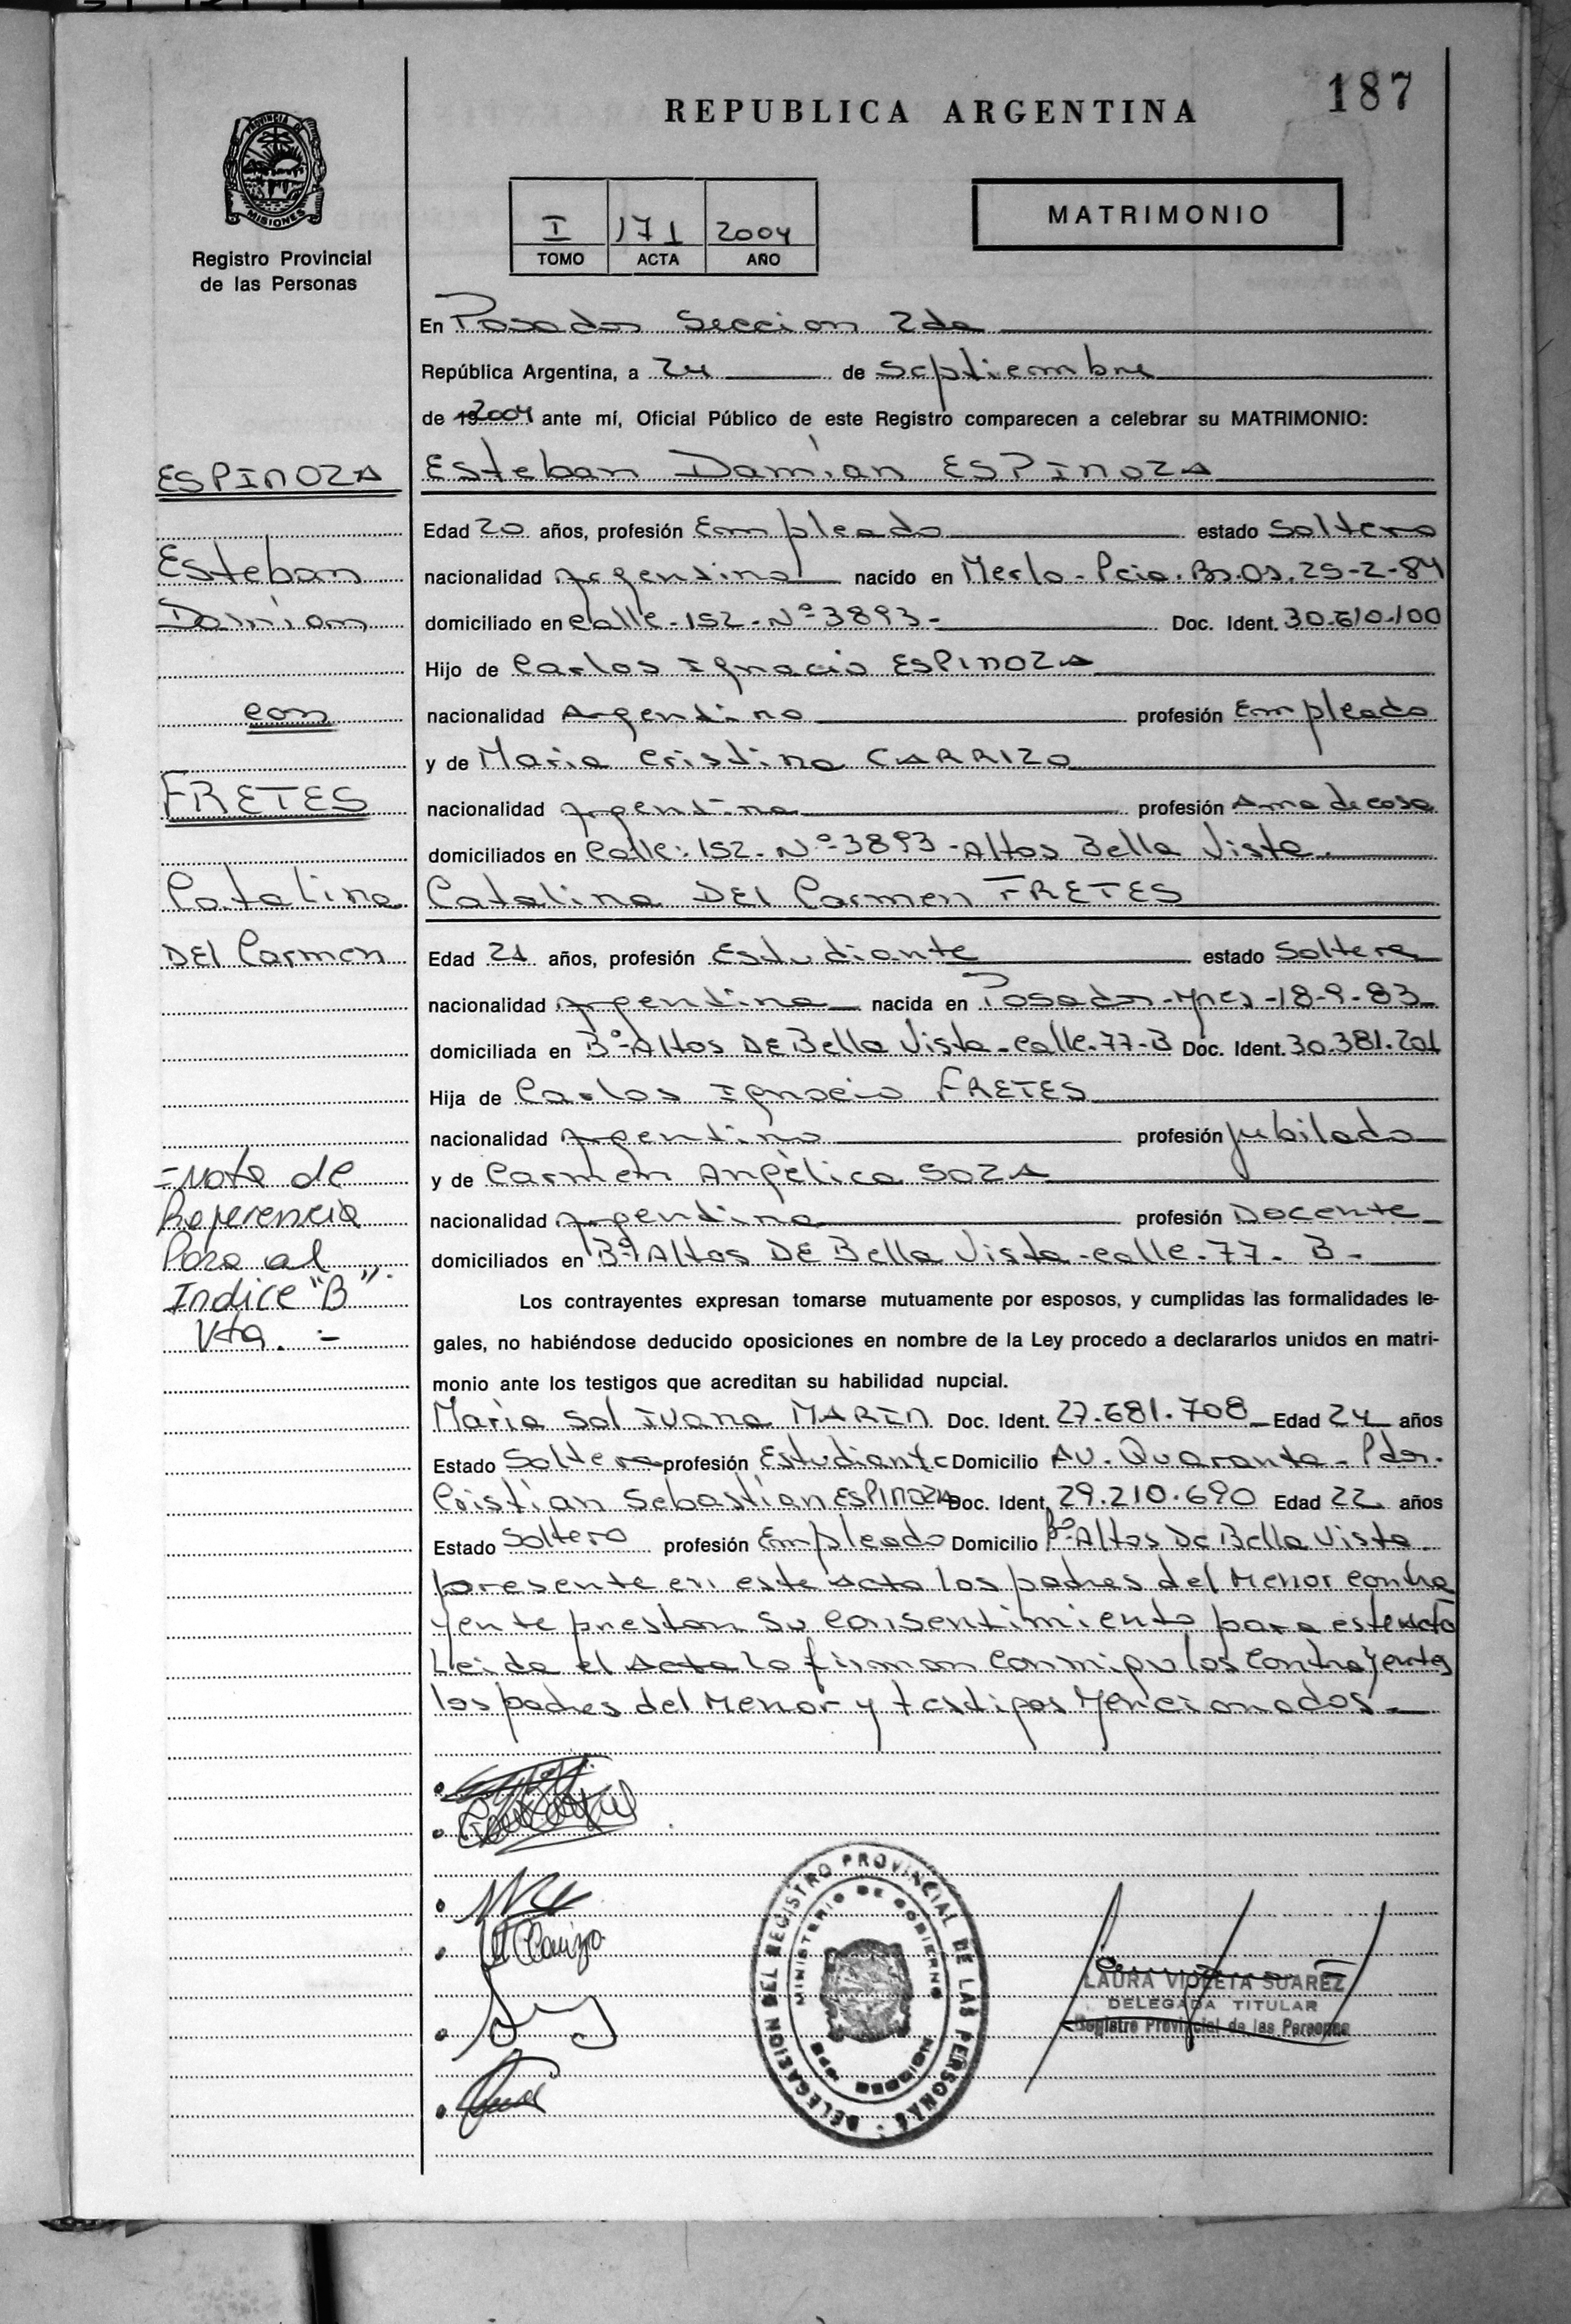 187
REPUBLICA ARGENTINA
PROVINCIA DE
MISIONES
Registro Provincial
de las Personas
I 171 2004
TOMO ACTA AÑO
MATRIMONIO
En Posadas Seccion 2da
República Argentina, a 24 de septiembre
de 19 2004 ante mí, Oficial Público de este Registro comparecen a celebrar su MATRIMONIO:
ESPINOZA
Esteban
Damian
con
FRETES
Catalina
DEl Carmen
=Nota de
Referencia
Pasa al
Indice "B"
Vta. =
Esteban Damian ESPINOZA
Edad 20 años, profesión Empleado estado Soltero
nacionalidad Argentina nacido en Merlo-Pcia.Bs.As.25-2-84
domiciliado en calle-152-Nº-3893- Doc. Ident. 30.610.100
Hijo de Carlos Ignacio ESPINOZA
nacionalidad Argentino profesión Empleado
y de Maria Cristina CARRIZO
nacionalidad Argentina profesión Ama de casa
domiciliados en Calle:152-Nº-3893-Altos Bella Vista.
Catalina DEl Carmen FRETES
Edad 21 años, profesión Estudiante estado Soltera
nacionalidad Argentina nacida en Posadas-Mnes-18-9-83
domiciliada en Bº-Altos DE Bella Vista-calle-77-B Doc. Ident. 30.381.201
Hija de Carlos Ignacio FRETES
nacionalidad Argentino profesión Jubilado
y de Carmen Angélica SOZA
nacionalidad Argentina profesión Docente
domiciliados en Bº-Altos DE Bella Vista-calle-77-B-
Los contrayentes expresan tomarse mutuamente por esposos, y cumplidas las formalidades le-
gales, no habiéndose deducido oposiciones en nombre de la Ley procedo a declararlos unidos en matri-
monio ante los testigos que acreditan su habilidad nupcial.
Maria Sol IVana MARIN Doc. Ident. 27.681.708 Edad 24 años
Estado Soltera profesión Estudiante Domicilio AV. Quaranta-Pdas.
Cristian Sebastian ESPINOZA Doc. Ident. 29.210.690 Edad 22 años
Estado Soltero profesión Empleado Domicilio Bº-Altos De Bella Vista
presente en este Acto los padres del Menor contra
yente prestan su consentimiento para este Acto
Leida el Acta la firman conmigo los contrayentes
los padres del Menor y testigos Mencionados.-
M Carrizo
DELEGACION DEL REGISTRO PROVINCIAL DE LAS PERSONAS
MINISTERIO DE GOBIERNO
LAURA VIOLETA SUAREZ
DELEGADA TITULAR
Registro Provincial de las Personas